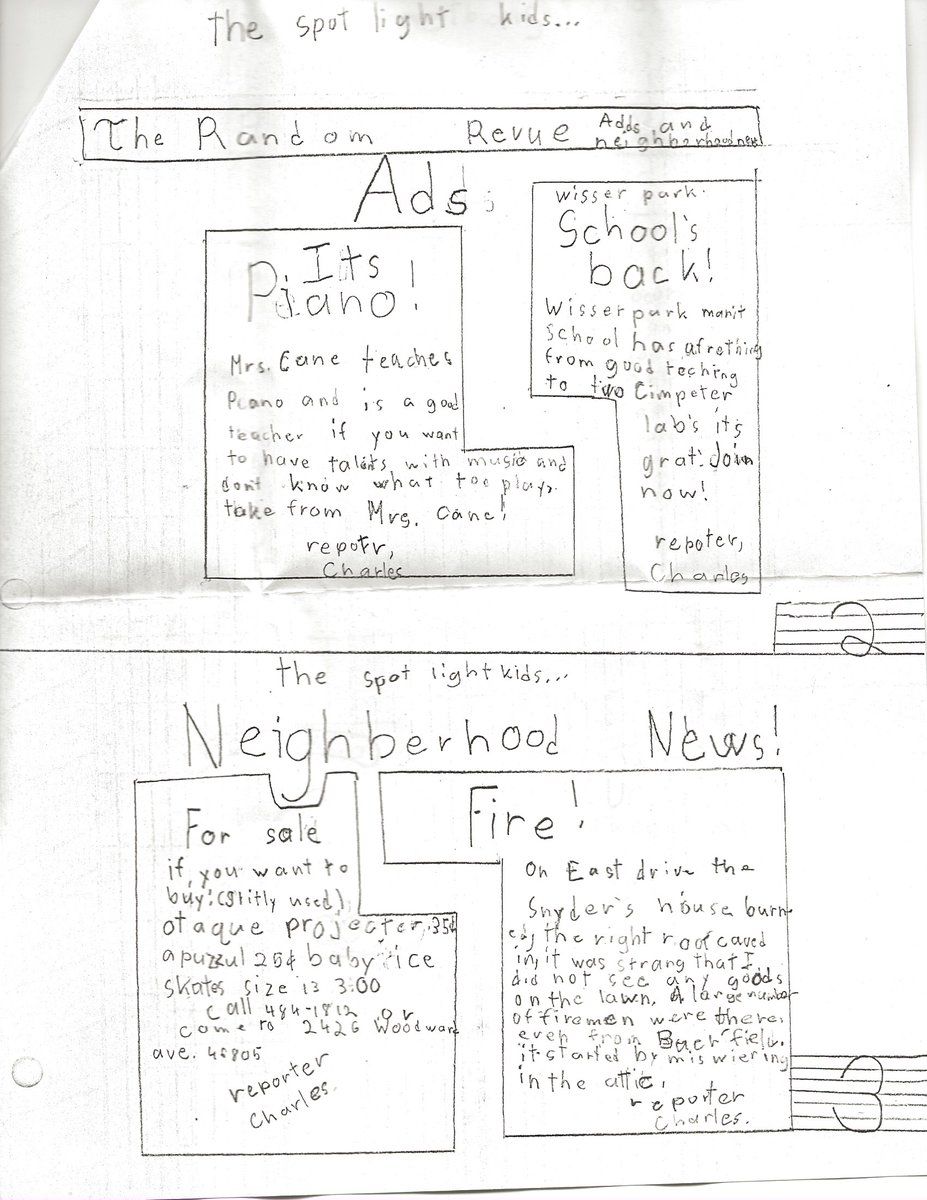 the spot light kids...
The Random Revue Adds and
neighborhood news
Ads
Its
Piano!
Mrs. Cane teaches
Piano and is a good
teacher if you want
to have talents with music and
dont know what too play.
take from Mrs. Cane!
repotr,
Charles
wisser park.
School's
back!
Wisser park manit
school has afrething
from good teching
to two Cimpeter
lab's it's
grat. Join
now!
repoter,
Charles
2
the spot light kids...
Neighberhood News!
For sale
if you want to
buy: (slitly used)
otaque projecter, 35¢
a puzzul 25¢ baby ice
skates size 13 3.00
call 484-1812 or
come to 2426 Woodward
ave. 46805
reporter
Charles.
Fire!
On East drive the
Snyder's house burn-
ed; the right roof caved
in, it was strang that I
did not see any goods
on the lawn. A large number
of firemen were there.
even from Bachfield.
it started by miswiering
in the attic.
reporter
Charles.
3